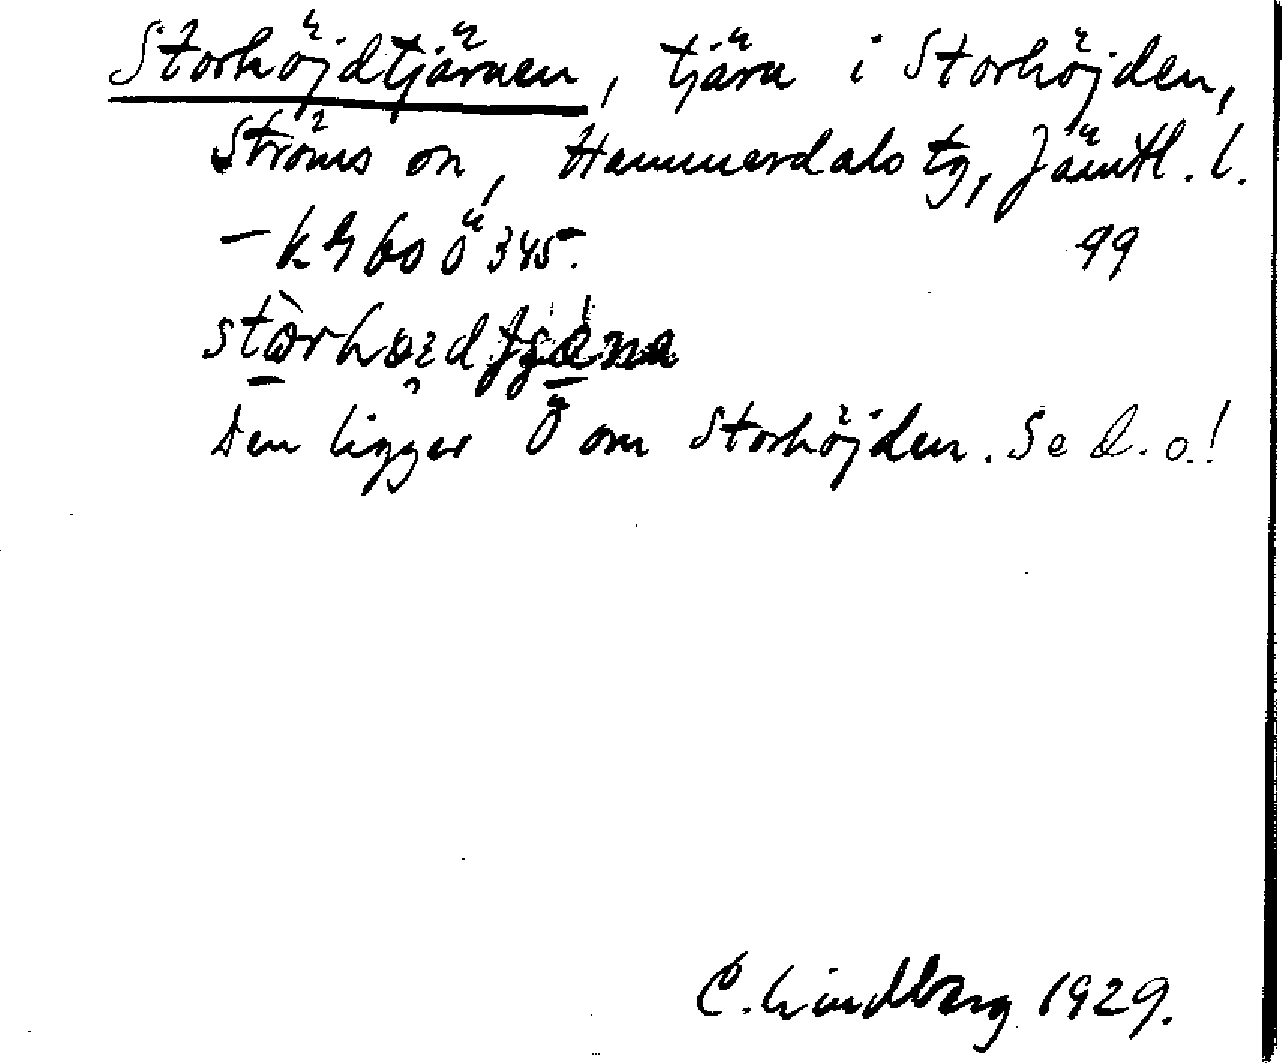 Storhöjdtjärnen, tjärn i Storhöjden,
Ströms sn, Hammerdals tg, Jämtl. l.
Ö 345. 99
Den ligger Ö om Storhöjden. Se d. o.!
C. Lindberg 1929.